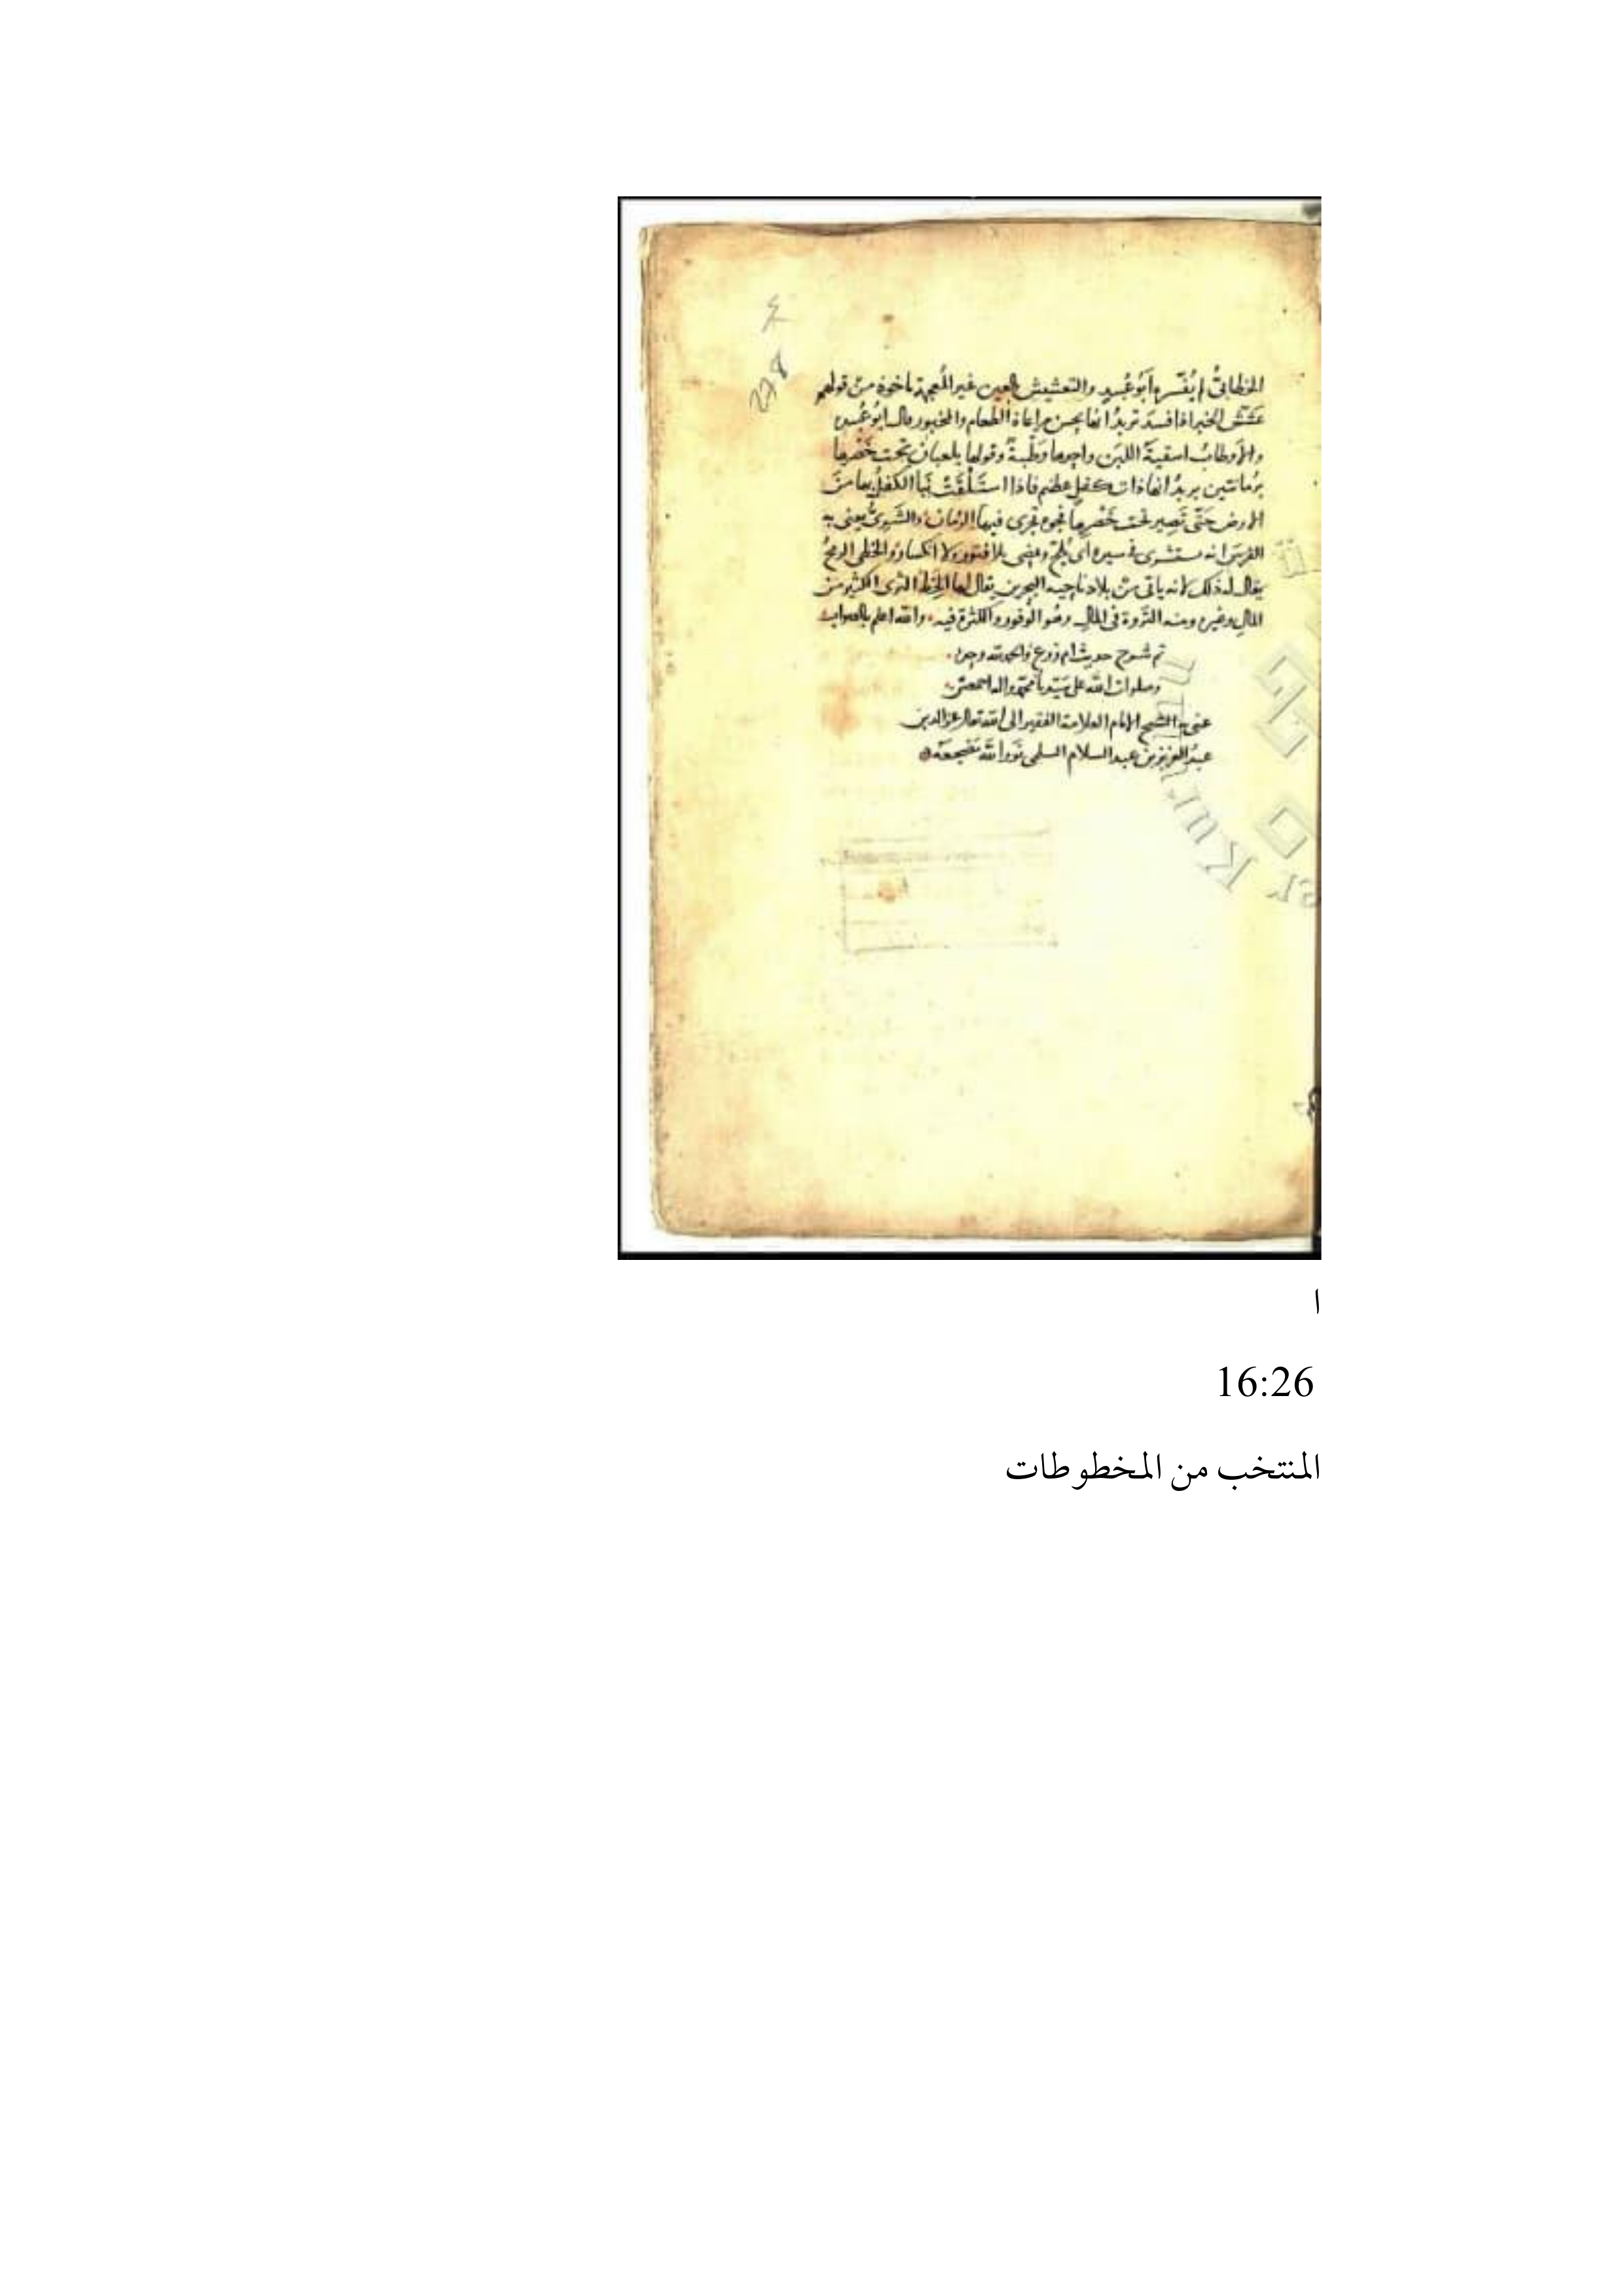 278
الخطابيُّ لم يُفَسّره أَبُو عُبيدٍ والتعشيش بالعين غير المُعجمة ماخوذ من قولهم
عَشَّشَ الخبز اذا فسدَ تريدُ انها تحسن مراعاة الطعام والمخبوز وقال ابو عُبيد
والأَوطابُ اسقيةُ اللبن واحدها وَطْبةٌ وقولها يلعبان من تحت خَصْرِها
برُمانتين يريدُ انها ذات كفلٍ عظيم فاذا استَلْقَتْ نَبَا الكفلُ بها من
الارض حَتّى تَصِير تحت خَصْرِها فجوة تجرى فيها الرُمان والشَرِىُّ يعنى به
الفرسَ انه يستشرى فى سيره اى يُلِحّ ويمضى بلا فتور ولا انكسار والخطى الرمحُ
يقال له ذلك لانه ياتى من بلاد ناحيه البحرين يقال لها الخط الثرى الكثير من
المالِ وغيره ومنه الثَروة فى المالِ وهُو الوُفور والكثرة فيه والله اعلم بالصواب
تم شرح حديث ام زرع والحمد لله وحده
وصلوات الله على سَيّدنا محمّد واله اجمعين
عنى به الشيخ الامام العلامة الفقير الى الله تعالى عز الدين
عبدُ العزيز بن عبد السلام السلمى نَوّر الله مَضْجعَهُ
ا
16:26
المنتخب من المخطوطات